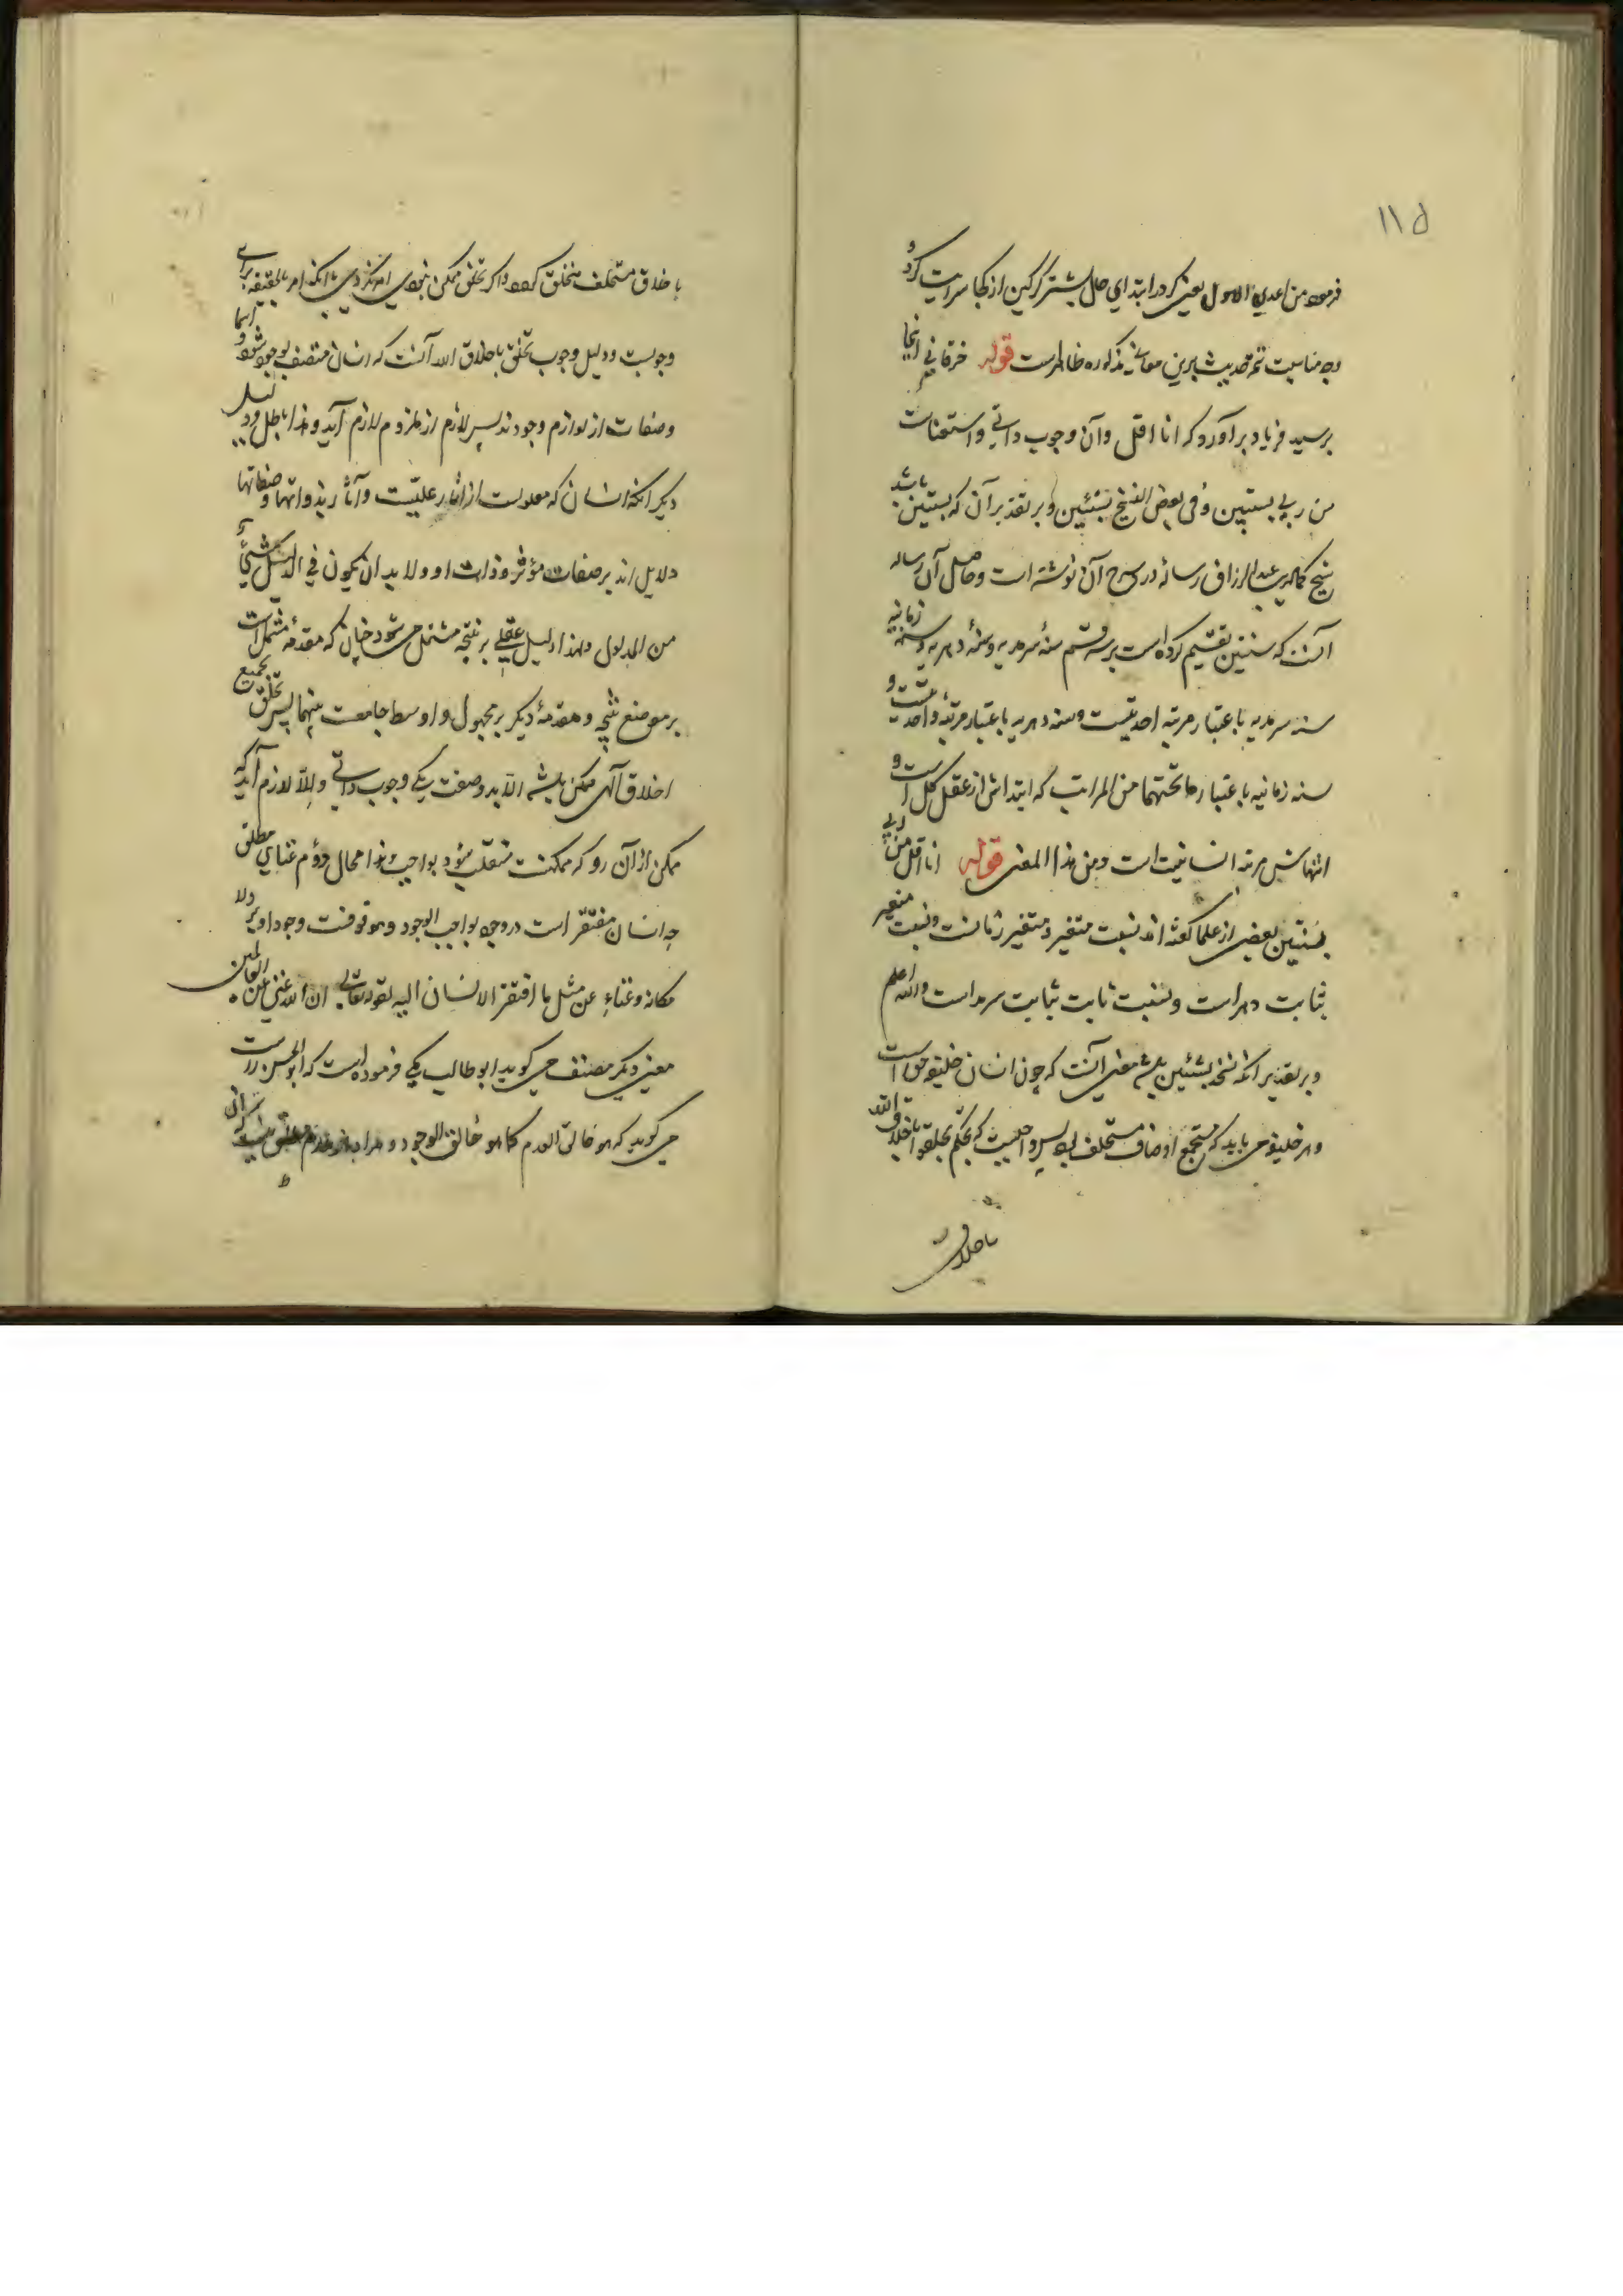 ۱۱۵
فرموده من اعدي الاول یعنی که در ابتدای حال بشتر گرگین از کجا سرایت کرد و
وجه مناسبت تتمه حدیث برین معانی مذکوره ظاهرست قوله خرقانی اینجا
برسید فریاد برآورد که انا اقل وآن وجوب ذاتی و استغناست
من ربی بسنتین وفی بعض النسخ بشیئین و بر تقدیر آن که بسنتین باشد
شیخ کمال الدین عبدالرزاق رساله در شرح آن نوشته است و حاصل آن رساله
آنست که سنتین تقسیم کرده است بر سه قسم سنهٔ سرمدیه و سنهٔ دهریه و سنه زمانیه
سنه سرمدیه باعتبار مرتبه احدیتست و سنه دهریه باعتبار مرتبهٔ واحدیتست و
سنه زمانیه باعتبار ما تحتهما من المراتب که ابتداش از عقل کل است و
انتهاش مرتبه انسانیت است ومن هذا المعنی قوله انا اقل من ربی
بسنتین بعضی از علما گفته اند نسبت متغیر بمتغیر زمانست و نسبت متغیر
بثابت دهر است و نسبت ثابت بثابت سرمد است والله اعلم
و بر تقدیر آنکه نسخه بشیئین باشد معنی آنست که چون انسان خلیفه حق است
و هر خلیفه می باید که مستجمع اوصاف مستخلف بود پس واجبست که بحکم تخلقوا باخلاق الله
باخلاق
باخلاق مستخلف متخلق گردد و اگر تخلق ممکن نبودی امر نکردی با آنکه امر بالحقیقه برای
وجوبست و دلیل وجوب تخلق باخلاق الله آنست که انسان متصف بوجود شود و اسما
وصفات از لوازم وجودند پس لازم از ملزوم لازم آید و هذا باطل و دلیل
دیگر آنکه انسان که معلولست از آثار علیتست و آثار بذواتها و صفاتها
دلایل اند بر صفات مؤثر و ذات او و لا بد ان یکون في الدلیل شيء
من المدلول ولهذا دلیل عقلی بر نتیجه مشتمل می شود چنان که مقدمهٔ مشتملست
بر موضع نتیجه و مقدمهٔ دیگر بر محمول و اوسط جامعست بینهما پس تخلق بجمیع
اخلاق آلهی ممکن باشد الا بدو صفت یکی وجوب ذاتی والا لازم آید که
ممکن از آن رو که ممکنست منقلب شود بواجب و هذا محال دوم غنای مطلق
چه انسان مفتقر است در وجود بواجب الوجود و موقوفست وجود او بر ولا
مکانه وغناء عن مثل ما افتقر الانسان الیه لقوله تعالی ان الله غنی عن العالمین
معنی دیگر مصنف می گوید ابوطالب مکی فرموده است که ابوالحسن راست
می گوید که هو خالق العدم کما هو خالق الوجود و مراد از عدم